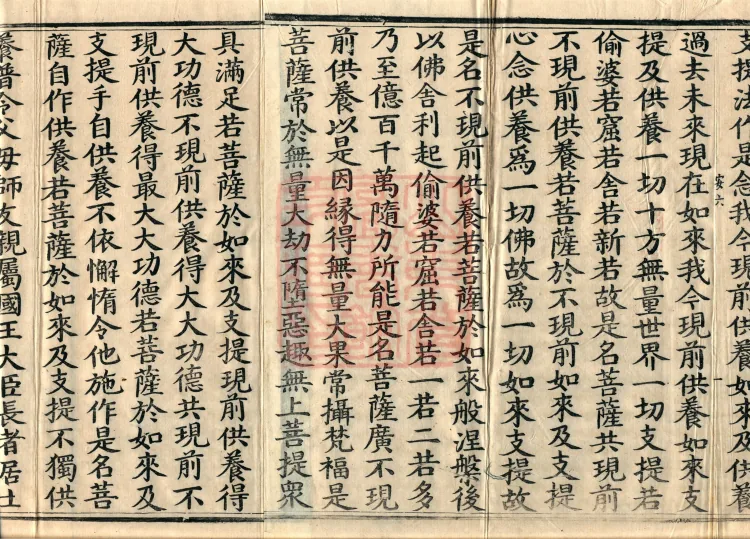 支提法作是念我今現前供養如來及供養
安六 一
過去未來現在如來我今現前供養如來支
提及供養一切十方無量世界一切支提若
偷婆若窟若舍若新若故是名菩薩共現前
不現前供養若菩薩於不現前如來及支提
心念供養爲一切佛故爲一切如來支提故
是名不現前供養若菩薩於如來般涅槃後
以佛舍利起偷婆若窟若舍若一若二若多
乃至億百千萬隨力所能是名菩薩廣不現
前供養以是因緣得無量大果常攝梵福是
菩薩常於無量大劫不墮惡趣無上菩提衆
具滿足若菩薩於如來及支提現前供養得
大功德不現前供養得大大功德共現前不
現前供養得最大大功德若菩薩於如來及
支提手自供養不依懈惰令他施作是名菩
薩自作供養若菩薩於如來及支提不獨供
養普令父母師友親屬國王大臣長者居士